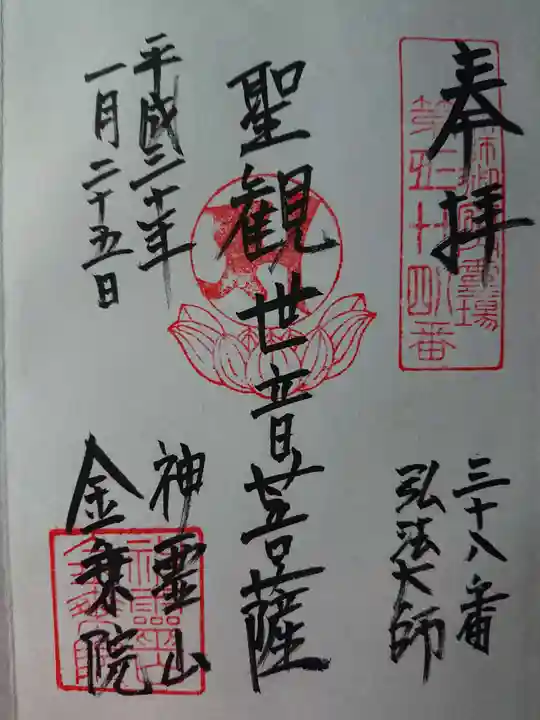 奉拝
第三十四番
三十八番
弘法大師
聖観世音菩薩
平成三十年
一月二十五日
神霊山
金乗院